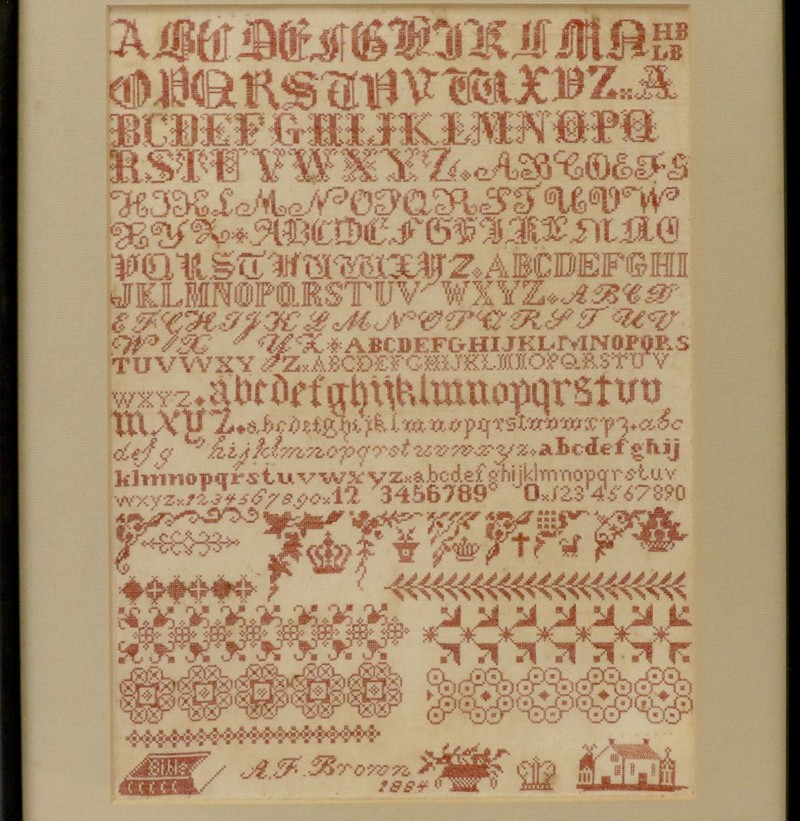 A B C D E F G H I J K L M N HB
LB
O P Q R S T U V W X Y Z A
B C D E F G H I J K L M N O P Q
R S T U V W X Y Z A B C D E F G
H I J K L M N O P Q R S T U V W
X Y Z A B C D E F G H I K L M N O
P Q R S T U V W X Y Z ABCDEFGHI
JKLMNOPQRSTUV WXYZ A B C D
E F G H I J K L M N O P Q R S T U V
W X Y Z ABCDEFGHIJKLMNOPQRS
TUVWXY Z ABCDEFGHIJKLMNOPQRSTUV
WXYZ abcdefghijklmnopqrstuv
wxyz abcdefghijklmnopqrstuvwxyz abc
defg hijklmnopqrstuvwxyz abcdefghij
klmnopqrstuvwxyz abcdefghijklmnopqrstuv
wxyz 1234567890 12 3456789 0 1234567890
Bible A.F. Brown
1884